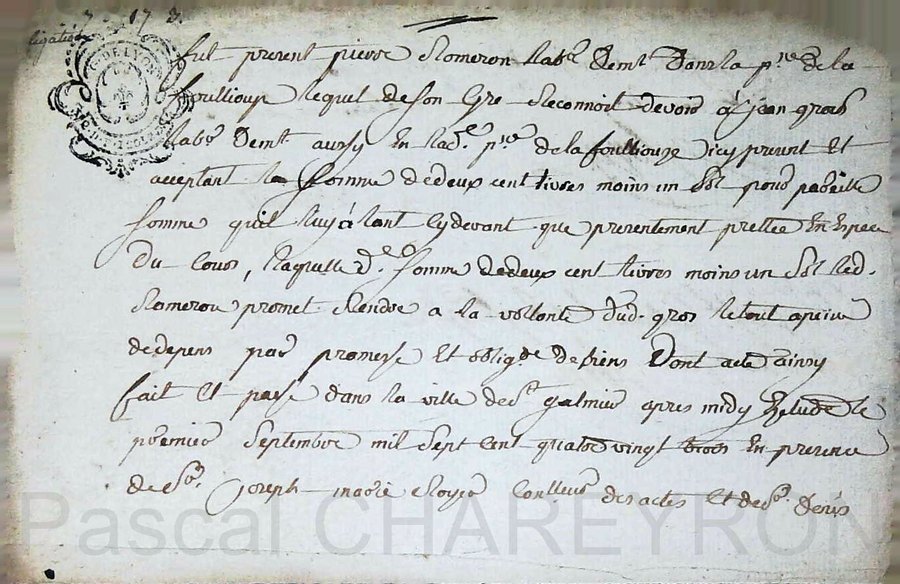 ligation
G. DE LYON
fut present pierre Romeron lab.r dem.t dans la p.sse de la
foulliouse lequel de son gré reconnoit devoir à jean gros
lab.r dem.t aussy en lad.e p.sse de la foulliouze icy present et
acceptant la somme de deux cent livres moins un sol pour pareille
somme qu'il luy à tant cydevant que presentement prettée en espece
du cours, laquelle d.e somme de deux cent livres moins un sol led.
Romeron promet rendre a la vollonté dud. gros le tout a peine
de depens par promesse et oblig.on de biens dont acte ainsy
fait et passé dans la ville de s.t galmier apres midy Etude le
premier septembre mil sept cent quatre vingt trois en presence
de s.r joseph marie Royer conlleur des actes et de s.r denis
Pascal CHAREYRON